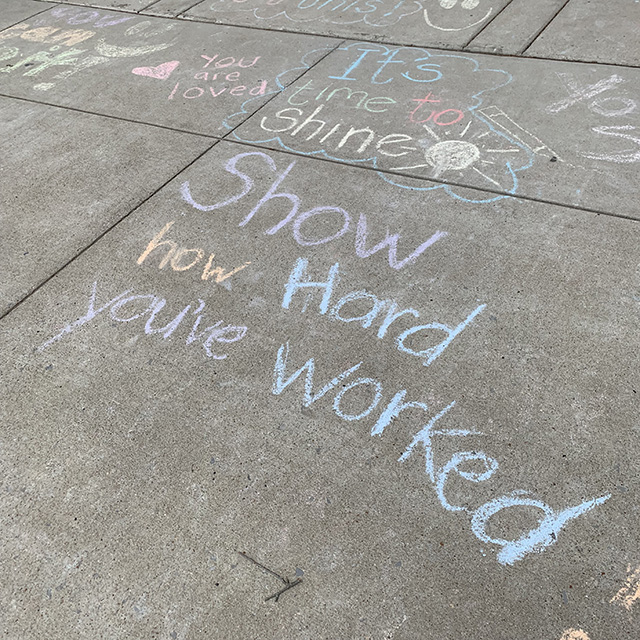 You
are
loved
It's
time to
Shine
Show
how Hard
you've Worked